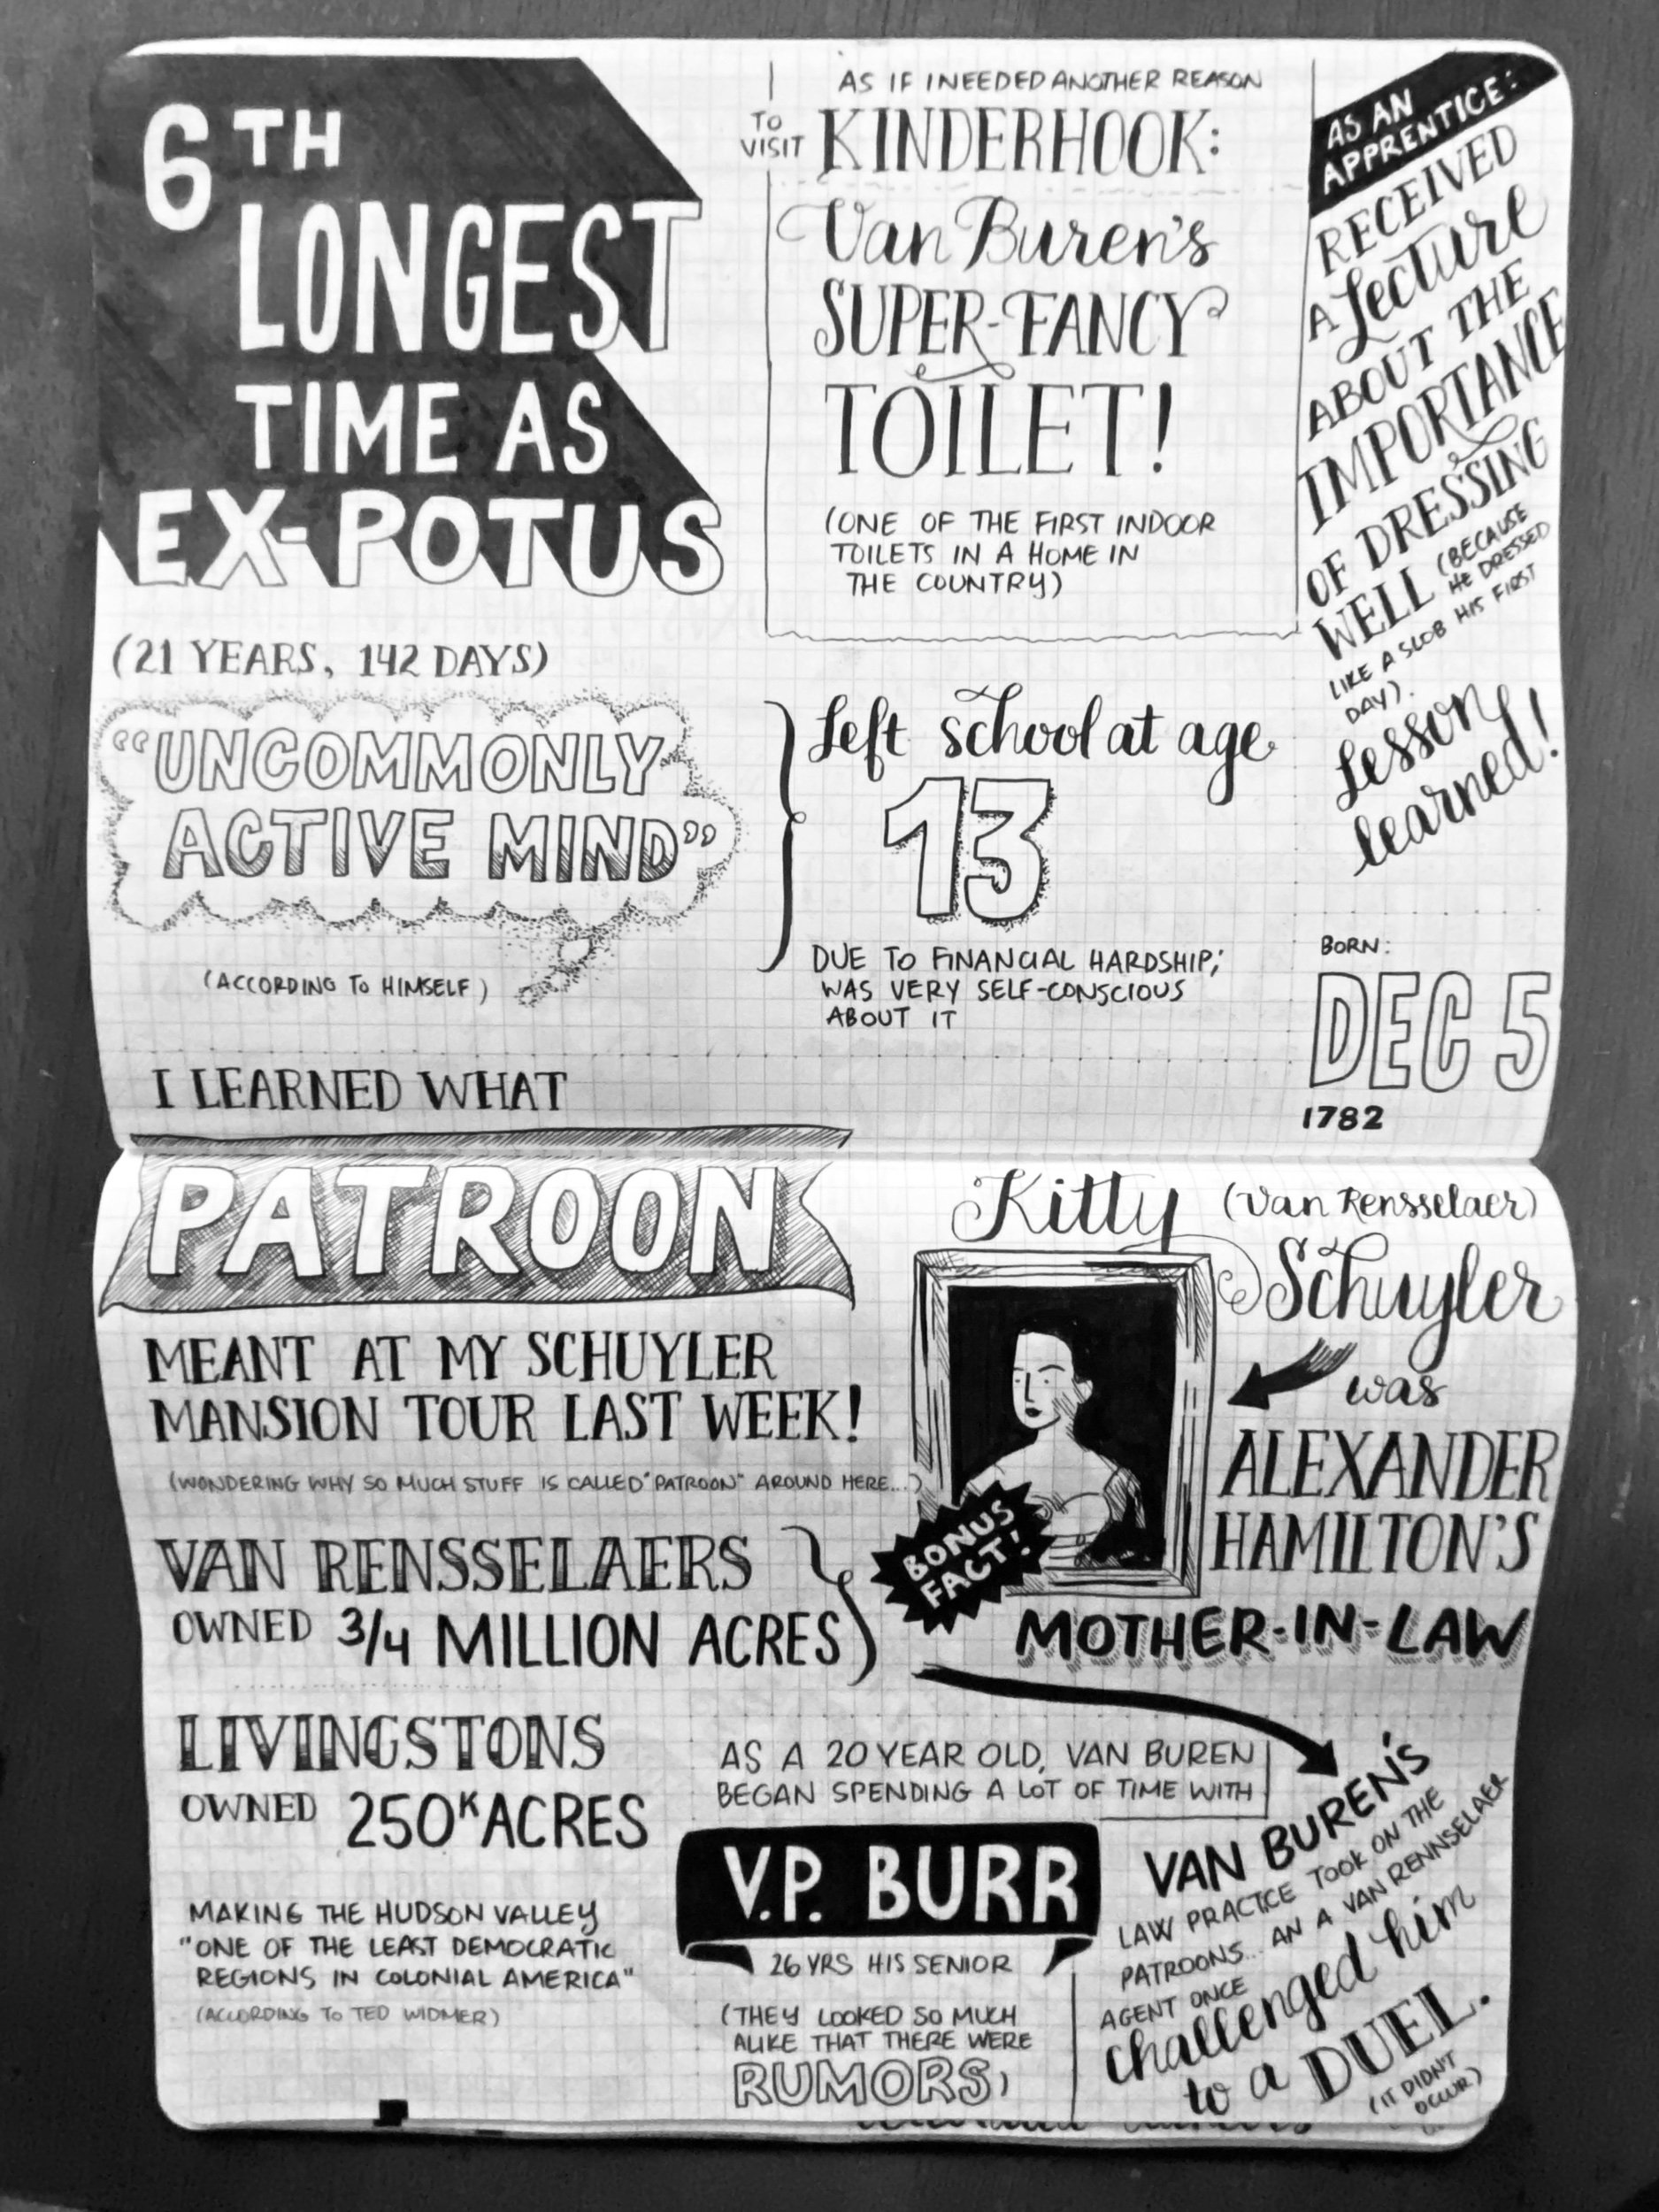 6TH
LONGEST
TIME AS
EX-POTUS
(21 YEARS, 142 DAYS)
AS IF I NEEDED ANOTHER REASON
TO
VISIT KINDERHOOK:
Van Buren's
SUPER-FANCY
TOILET!
(ONE OF THE FIRST INDOOR
TOILETS IN A HOME IN
THE COUNTRY)
AS AN
APPRENTICE:
RECEIVED
A Lecture
ABOUT THE
IMPORTANCE
OF DRESSING
WELL (BECAUSE
HE DRESSED
LIKE A SLOB HIS FIRST
DAY).
Lesson
learned!
"UNCOMMONLY
ACTIVE MIND"
(ACCORDING TO HIMSELF)
Left school at age
13
DUE TO FINANCIAL HARDSHIP;
WAS VERY SELF-CONSCIOUS
ABOUT IT
BORN:
DEC 5
1782
I LEARNED WHAT
PATROON
MEANT AT MY SCHUYLER
MANSION TOUR LAST WEEK!
(WONDERING WHY SO MUCH STUFF IS CALLED "PATROON" AROUND HERE...)
VAN RENSSELAERS
OWNED 3/4 MILLION ACRES
Kitty (Van Rensselaer)
Schuyler
was
ALEXANDER
HAMILTON'S
MOTHER-IN-LAW
BONUS
FACT!
LIVINGSTONS
OWNED 250K ACRES
MAKING THE HUDSON VALLEY
"ONE OF THE LEAST DEMOCRATIC
REGIONS IN COLONIAL AMERICA"
(ACCORDING TO TED WIDMER)
AS A 20 YEAR OLD, VAN BUREN
BEGAN SPENDING A LOT OF TIME WITH
V.P. BURR
26 YRS HIS SENIOR
(THEY LOOKED SO MUCH
ALIKE THAT THERE WERE
RUMORS)
VAN BUREN'S
LAW PRACTICE TOOK ON THE
PATROONS... AN A VAN RENNSELAER
AGENT ONCE
challenged him
to a DUEL.
(IT DIDN'T
OCCUR)